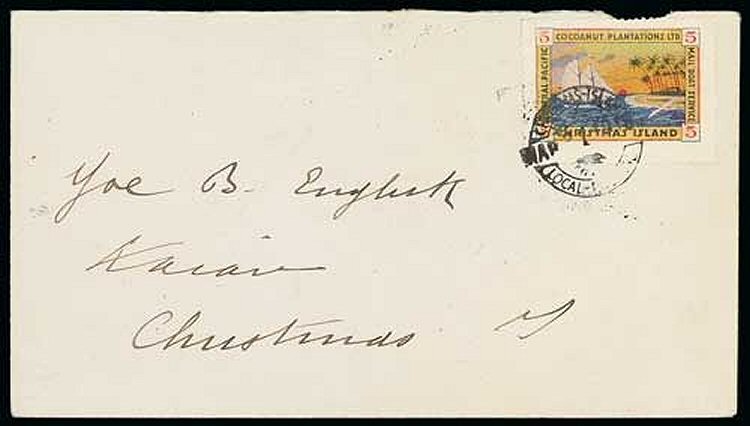 5 COCOANUT PLANTATIONS LTD 5
CENTRAL PACIFIC
MAIL BOAT SERVICE
CHRISTMAS ISLAND 5
MAR
LOCAL
Joe B. English
Christmas